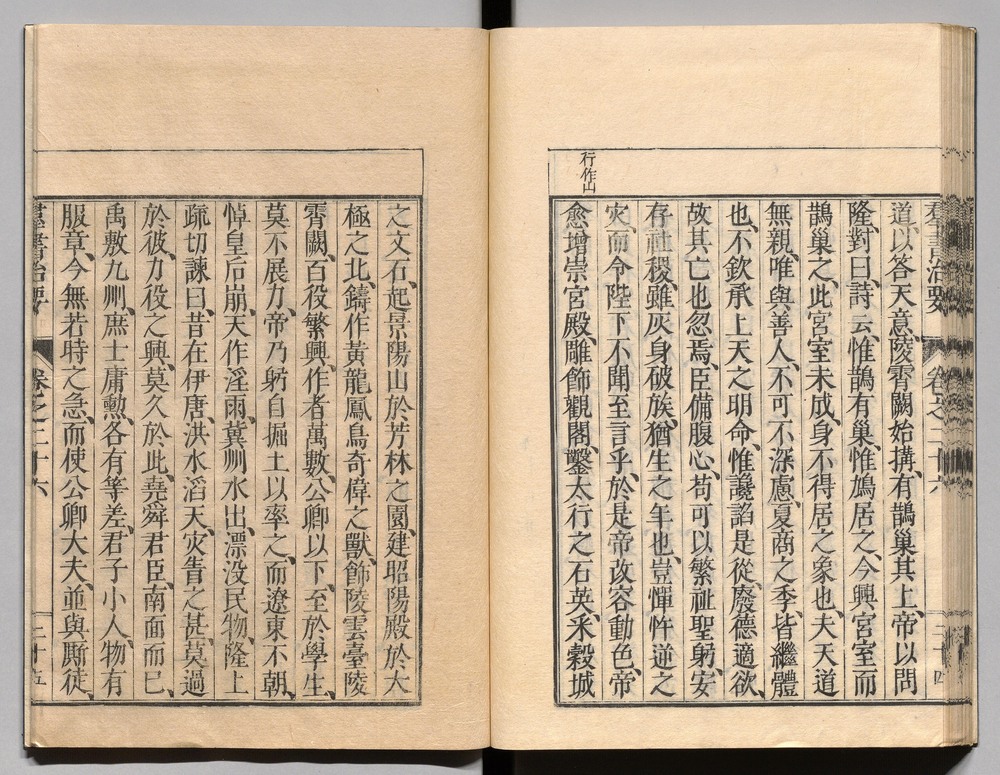 羣書治要 卷之二十六 二十四
道、以答天意、陵霄闕始搆、有鵲巢其上、帝以問
隆、對曰、詩云、惟鵲有巢、惟鳩居之、今興宮室、而
鵲巢之、此宮室未成、身不得居之象也、夫天道
無親、唯與善人、不可不深慮、夏商之季、皆繼體
也、不欽承上天之明命、惟讒諂是從、廢德適欲、
故其亡也忽焉、臣備腹心、苟可以繁祉聖躬、安
存社稷、雖灰身破族、猶生之年也、豈憚忤逆之
灾、而令陛下不聞至言乎、於是帝改容動色、帝
愈增崇宮殿、雕飾觀閣、鑿太行之石英、采穀城
行作山
之文石、起景陽山於芳林之園、建昭陽殿於太
極之北、鑄作黃龍鳳鳥奇偉之獸、飾陵雲臺陵
霄闕、百役繁興、作者萬數、公卿以下、至於學生、
莫不展力、帝乃躬自掘土以率之、而遼東不朝、
悼皇后崩、天作淫雨、冀州水出、漂沒民物、隆上
疏切諫曰、昔在伊唐、洪水滔天、灾眚之甚、莫過
於彼、力役之興、莫久於此、堯舜君臣、南面而已、
禹敷九州、庶士庸勳、各有等差、君子小人、物有
服章、今無若時之急、而使公卿大夫、並與厮徒、
羣書治要 卷之二十六 二十五